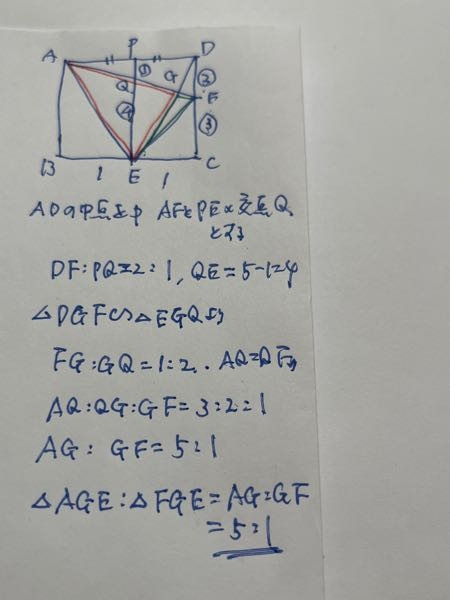 A P D
① G ②
Q F
④ ③
B 1 E 1 C
ADの中点をP AFとPEの交点Q
とする
DF:PQ=2:1, QE=5-1=4
△DGF∽△EGQより
FG:GQ=1:2. AQ=QFより
AQ:QG:GF=3:2:1
AG:GF=5:1
△AGE:△FGE=AG:GF
=5:1